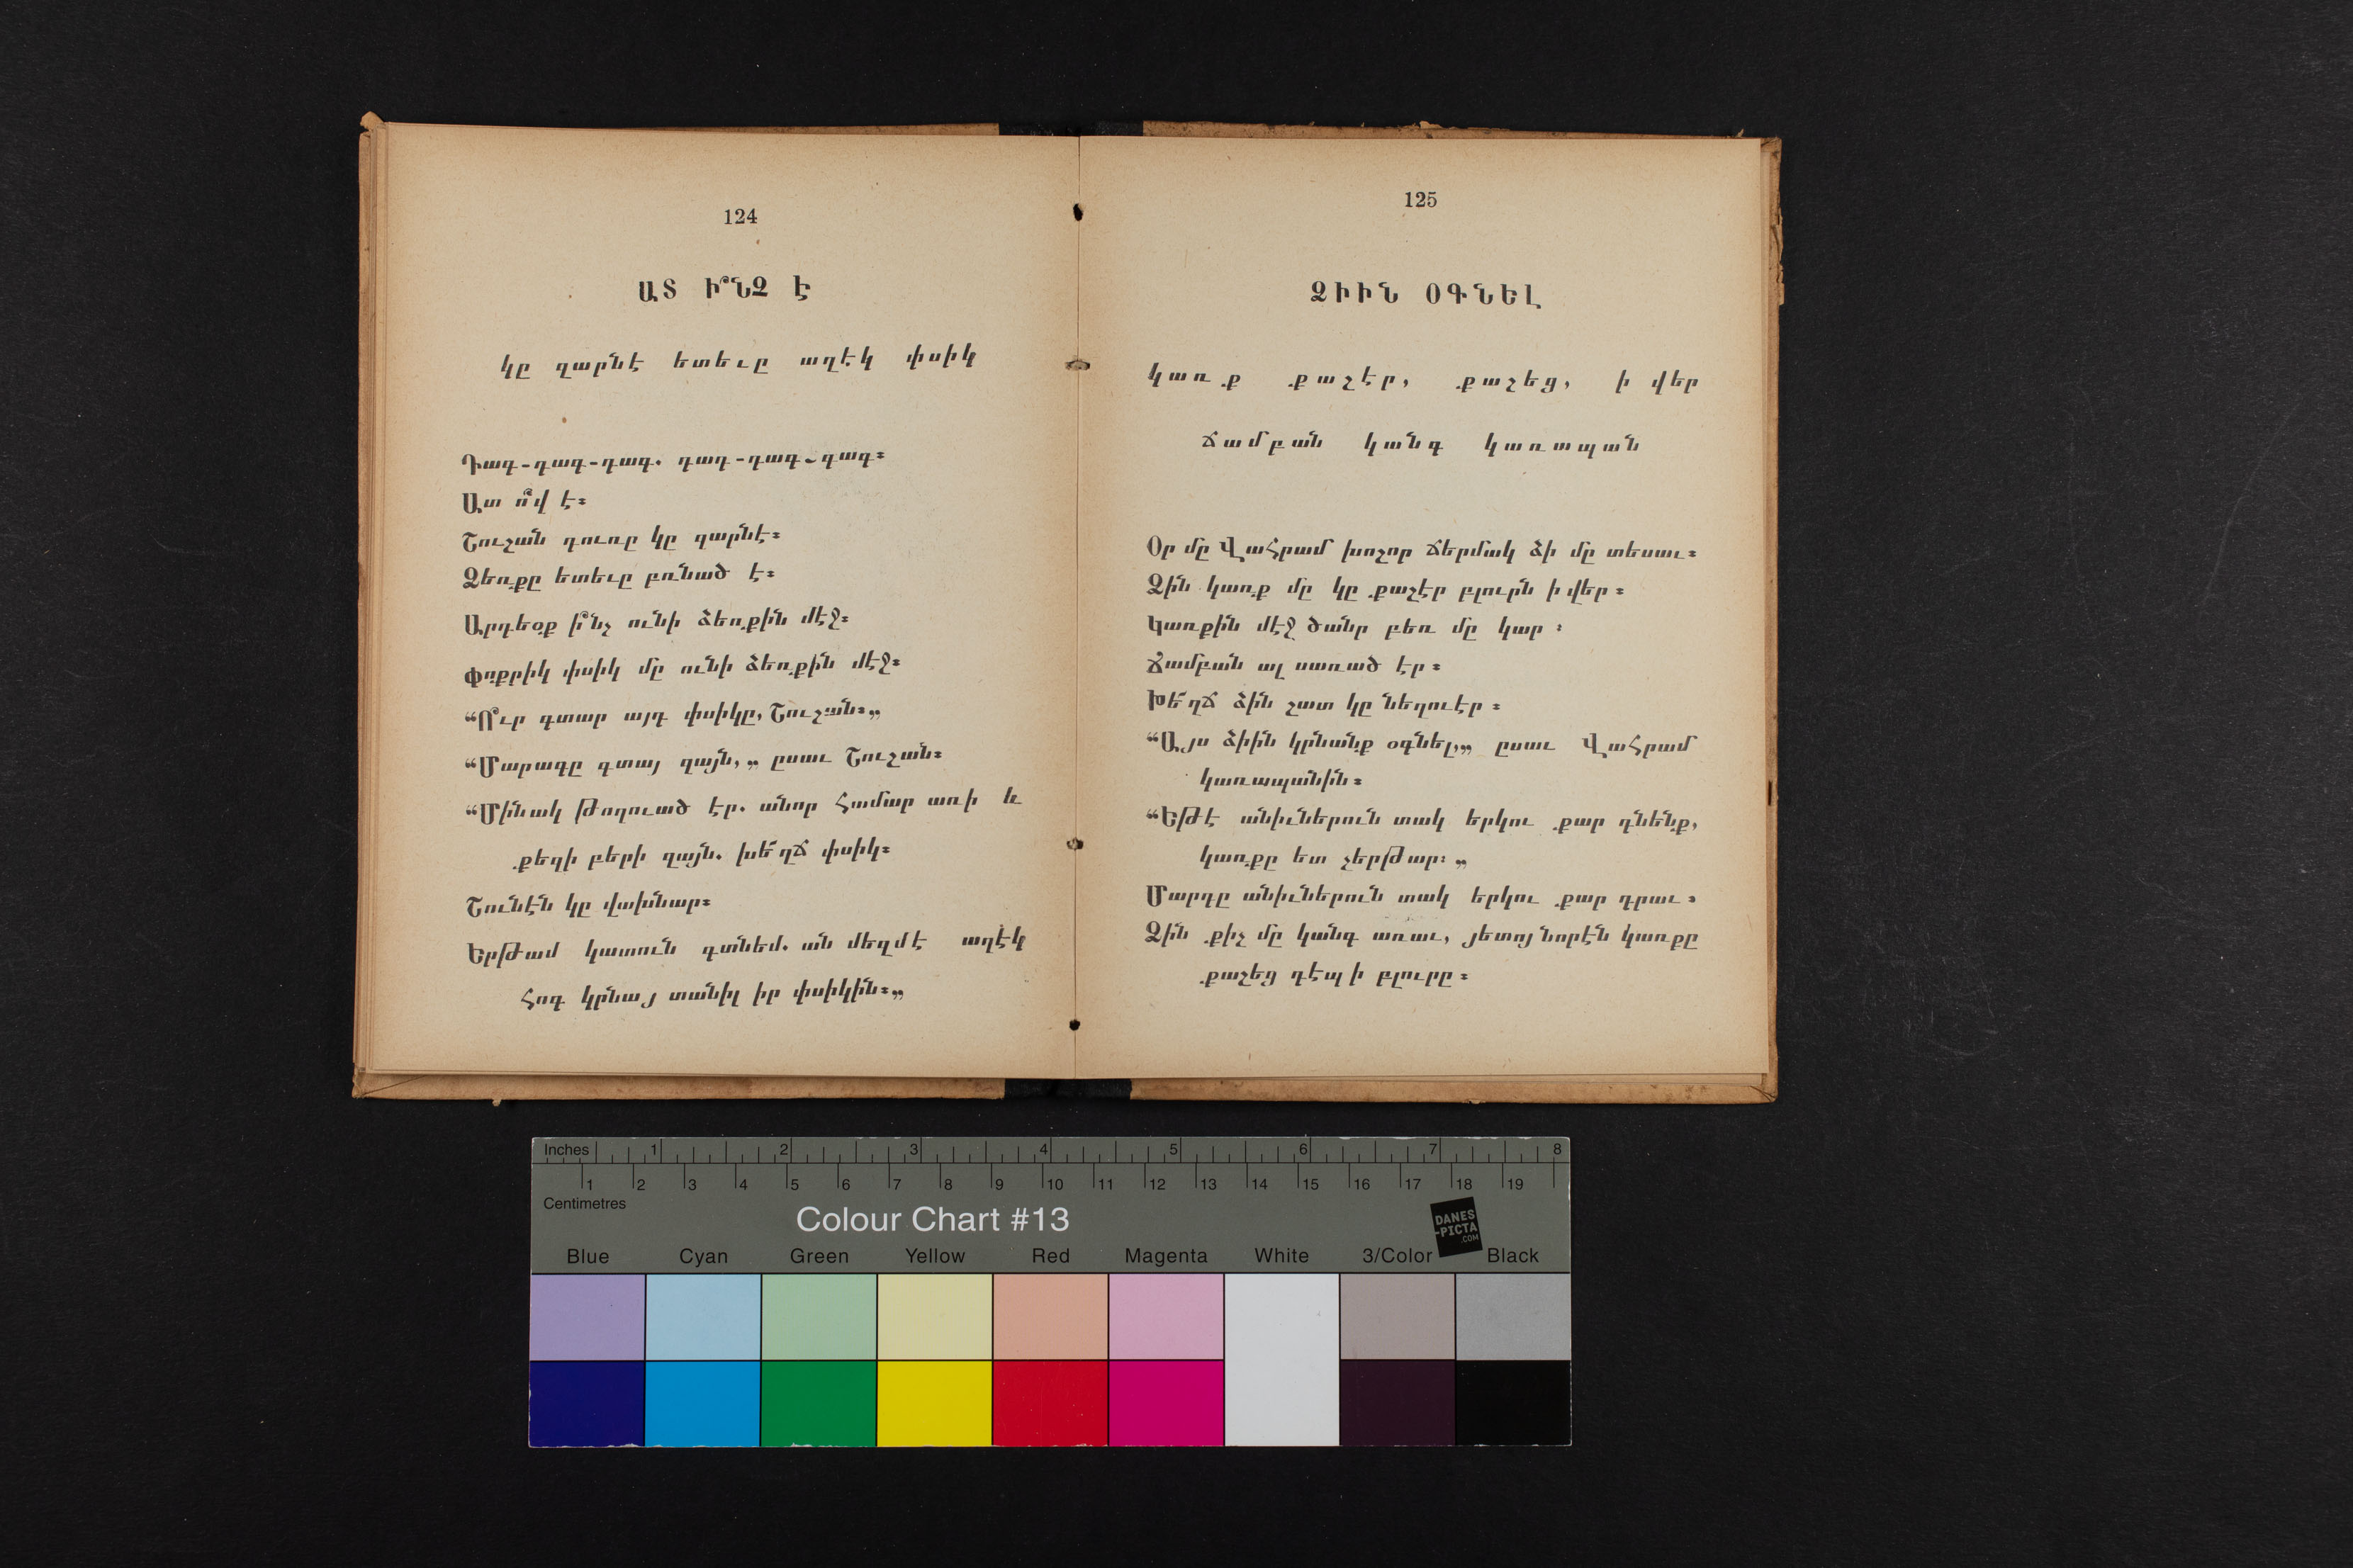 124
ԱՏ Ի՞ՆՉ Է
կը զարնէ ետեւը աղէկ փսիկ
Դագ-դագ-դագ. դագ-դագ-դագ։
Ատ ո՞վ է։
Շուշան դուռը կը զարնէ։
Ձեռքը ետեւը բռնած է։
Արդեօք ի՞նչ ունի ձեռքին մէջ։
Փոքրիկ փսիկ մը ունի ձեռքին մէջ։
“Ո՞ւր գտար այդ փսիկը, Շուշան։„
“Մարագը գտայ զայն,„ ըսաւ Շուշան։
“Մինակ թողուած էր. անոր համար առի և
քեզի բերի զայն. խե՜ղճ փսիկ։
Շունէն կը վախնար։
Երթամ կատուն գտնեմ. ան մեզմէ աղէկ
հոգ կրնայ տանիլ իր փսիկին։„
125
ՁԻԻՆ ՕԳՆԵԼ
կառք քաշէր, քաշեց, ի վեր
ճամբան կանգ կառապան
Օր մը Վահրամ խոշոր ճերմակ ձի մը տեսաւ։
Ձին կառք մը կը քաշէր բլուրն ի վեր։
Կառքին մէջ ծանր բեռ մը կար։
Ճամբան ալ սառած էր։
Խե՜ղճ ձին շատ կը նեղուէր։
“Այս ձիին կրնանք օգնել,„ ըսաւ Վահրամ
կառապանին։
“Եթէ անիւներուն տակ երկու քար դնենք,
կառքը ետ չերթար։„
Մարդը անիւներուն տակ երկու քար դրաւ։
Ձին քիչ մը կանգ առաւ, յետոյ նորէն կառքը
քաշեց դէպ ի բլուրը։
Inches 1 2 3 4 5 6 7 8
1 2 3 4 5 6 7 8 9 10 11 12 13 14 15 16 17 18 19
Centimetres
Colour Chart #13
DANES
-PICTA
.COM
Blue Cyan Green Yellow Red Magenta White 3/Color Black